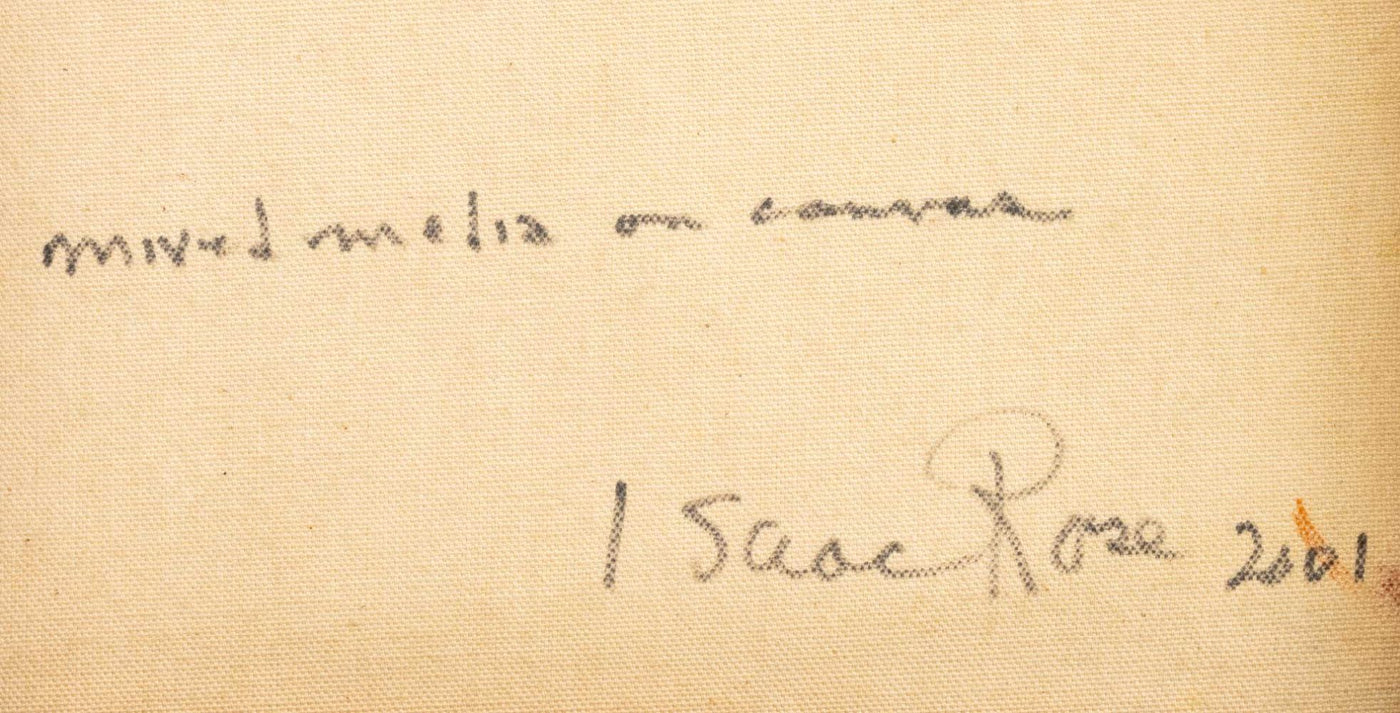 mixed media on canvas
Isaac Rose 2001